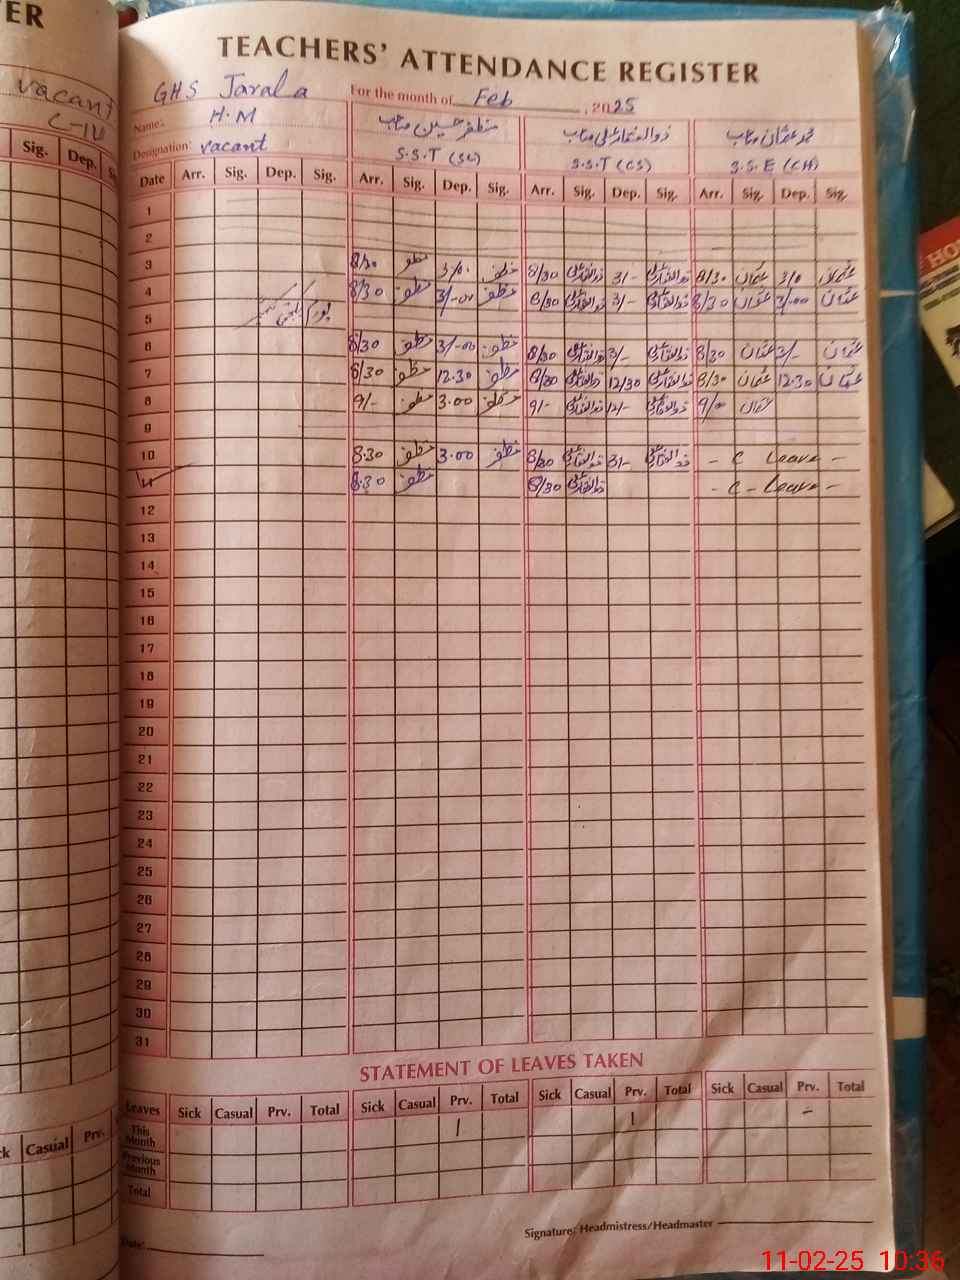 ER
TEACHERS' ATTENDANCE REGISTER
vacant
C-IV
GHS Jarala For the month of Feb , 2025
Name: H.M مظفر حسین صاحب ذوالفقار علی صاحب محمد عثمان صاحب
Designation: vacant S.S.T (SC) S.S.T (CS) S.S.E (CH)
Sig. Dep. S
Date Arr. Sig. Dep. Sig. Arr. Sig. Dep. Sig. Arr. Sig. Dep. Sig. Arr. Sig. Dep. Sig.
1
2
3 8/30 مظفر 3/00 مظفر 8/30 ذوالفقار علی 3/- ذوالفقار علی 8/30 عثمان 3/0 عثمان
4 8/30 مظفر 3/-00 مظفر 8/30 ذوالفقار علی 3/- ذوالفقار علی 8/30 عثمان 3/-00 عثمان
5
6 8/30 مظفر 3/-00 مظفر 8/30 ذوالفقار علی 3/- ذوالفقار علی 8/30 عثمان 3/- عثمان
7 8/30 مظفر 12.30 مظفر 8/30 ذوالفقار علی 12/30 ذوالفقار علی 8/30 عثمان 12.30 عثمان
8 9/- مظفر 3.00 مظفر 9/- ذوالفقار علی ذوالفقار علی 9/00 عثمان
9
10 8.30 مظفر 3.00 مظفر 8/30 ذوالفقار علی 3/- ذوالفقار علی - C Leave -
11 8.30 مظفر 8/30 ذوالفقار علی - C - Leave -
12
13
14
15
16
17
18
19
20
21
22
23
24
25
26
27
28
29
30
31
STATEMENT OF LEAVES TAKEN
ck Casual Prv.
Leaves Sick Casual Prv. Total Sick Casual Prv. Total Sick Casual Prv. Total Sick Casual Prv. Total
This Month 1 1 -
Previous Month
Total
Date: Signature: Headmistress/Headmaster
HO
11-02-25 10:36